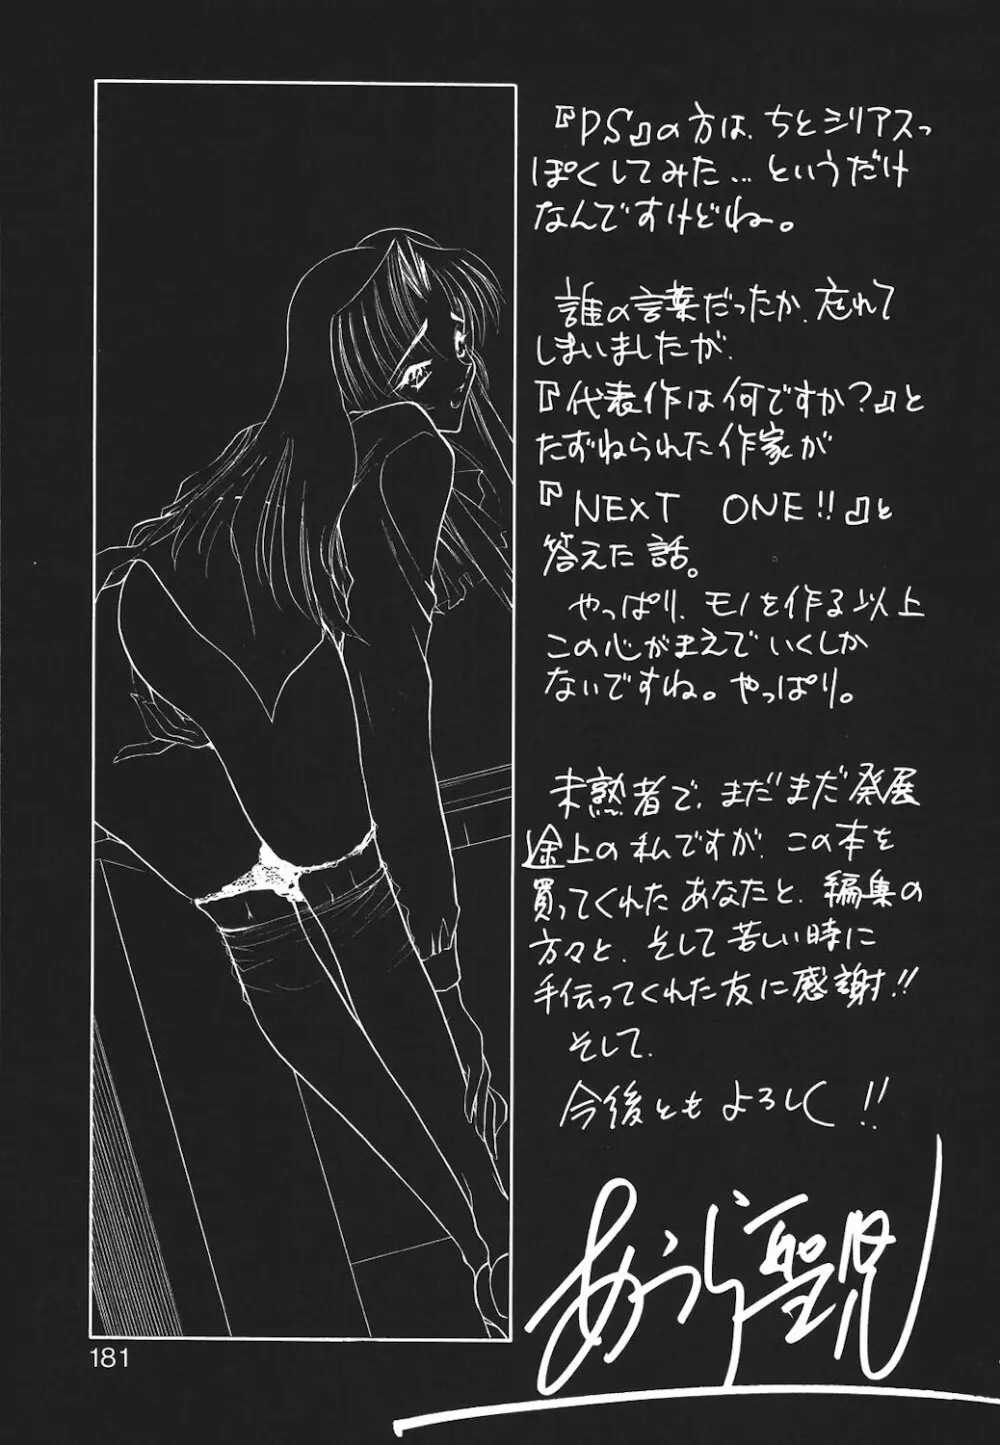 『PS』の方は、ちとシリアスっ
ぽくしてみた…というだけ
なんですけどね。
誰の言葉だったか、忘れて
しまいましたが、
『代表作は何ですか?』と
たずねられた作家が
『NEXT ONE!!』と
答えた話。
やっぱり、モノを作る以上
この心がまえでいくしか
ないですね。やっぱり。
未熟者で、まだまだ発展
途上の私ですが、この本を
買ってくれたあなたと、編集の
方々と、そして苦しい時に
手伝ってくれた友に感謝!!
そして、
今後ともよろしく!!
あうら聖児
181